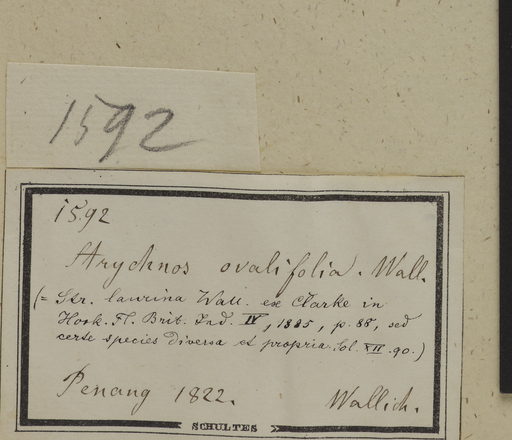 1592
1592
Strychnos ovalifolia. Wall.
(= Str. laurina Wall. ex Clarke in
Hook. Fl. Brit. Ind. IV, 1885, p. 88, sed
certe species diversa et propria. Sol. XII. 90.)
Penang 1822. Wallich.
SCHULTES